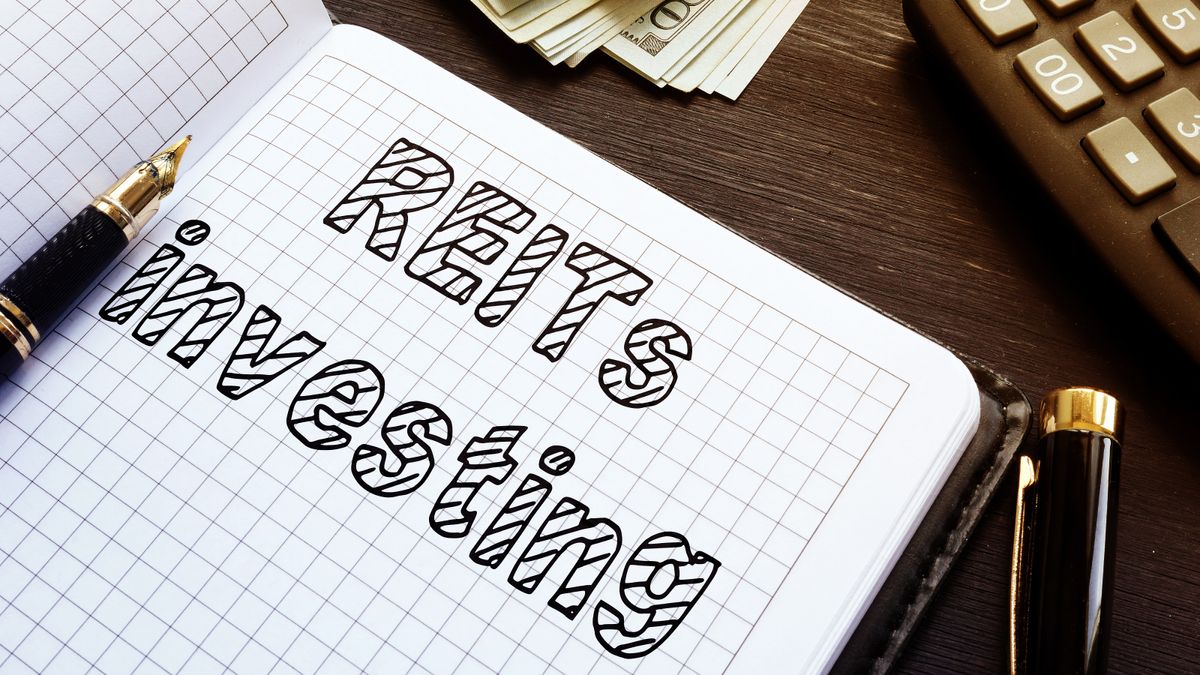 REITs
investing
00
0
00
2
5
.
3